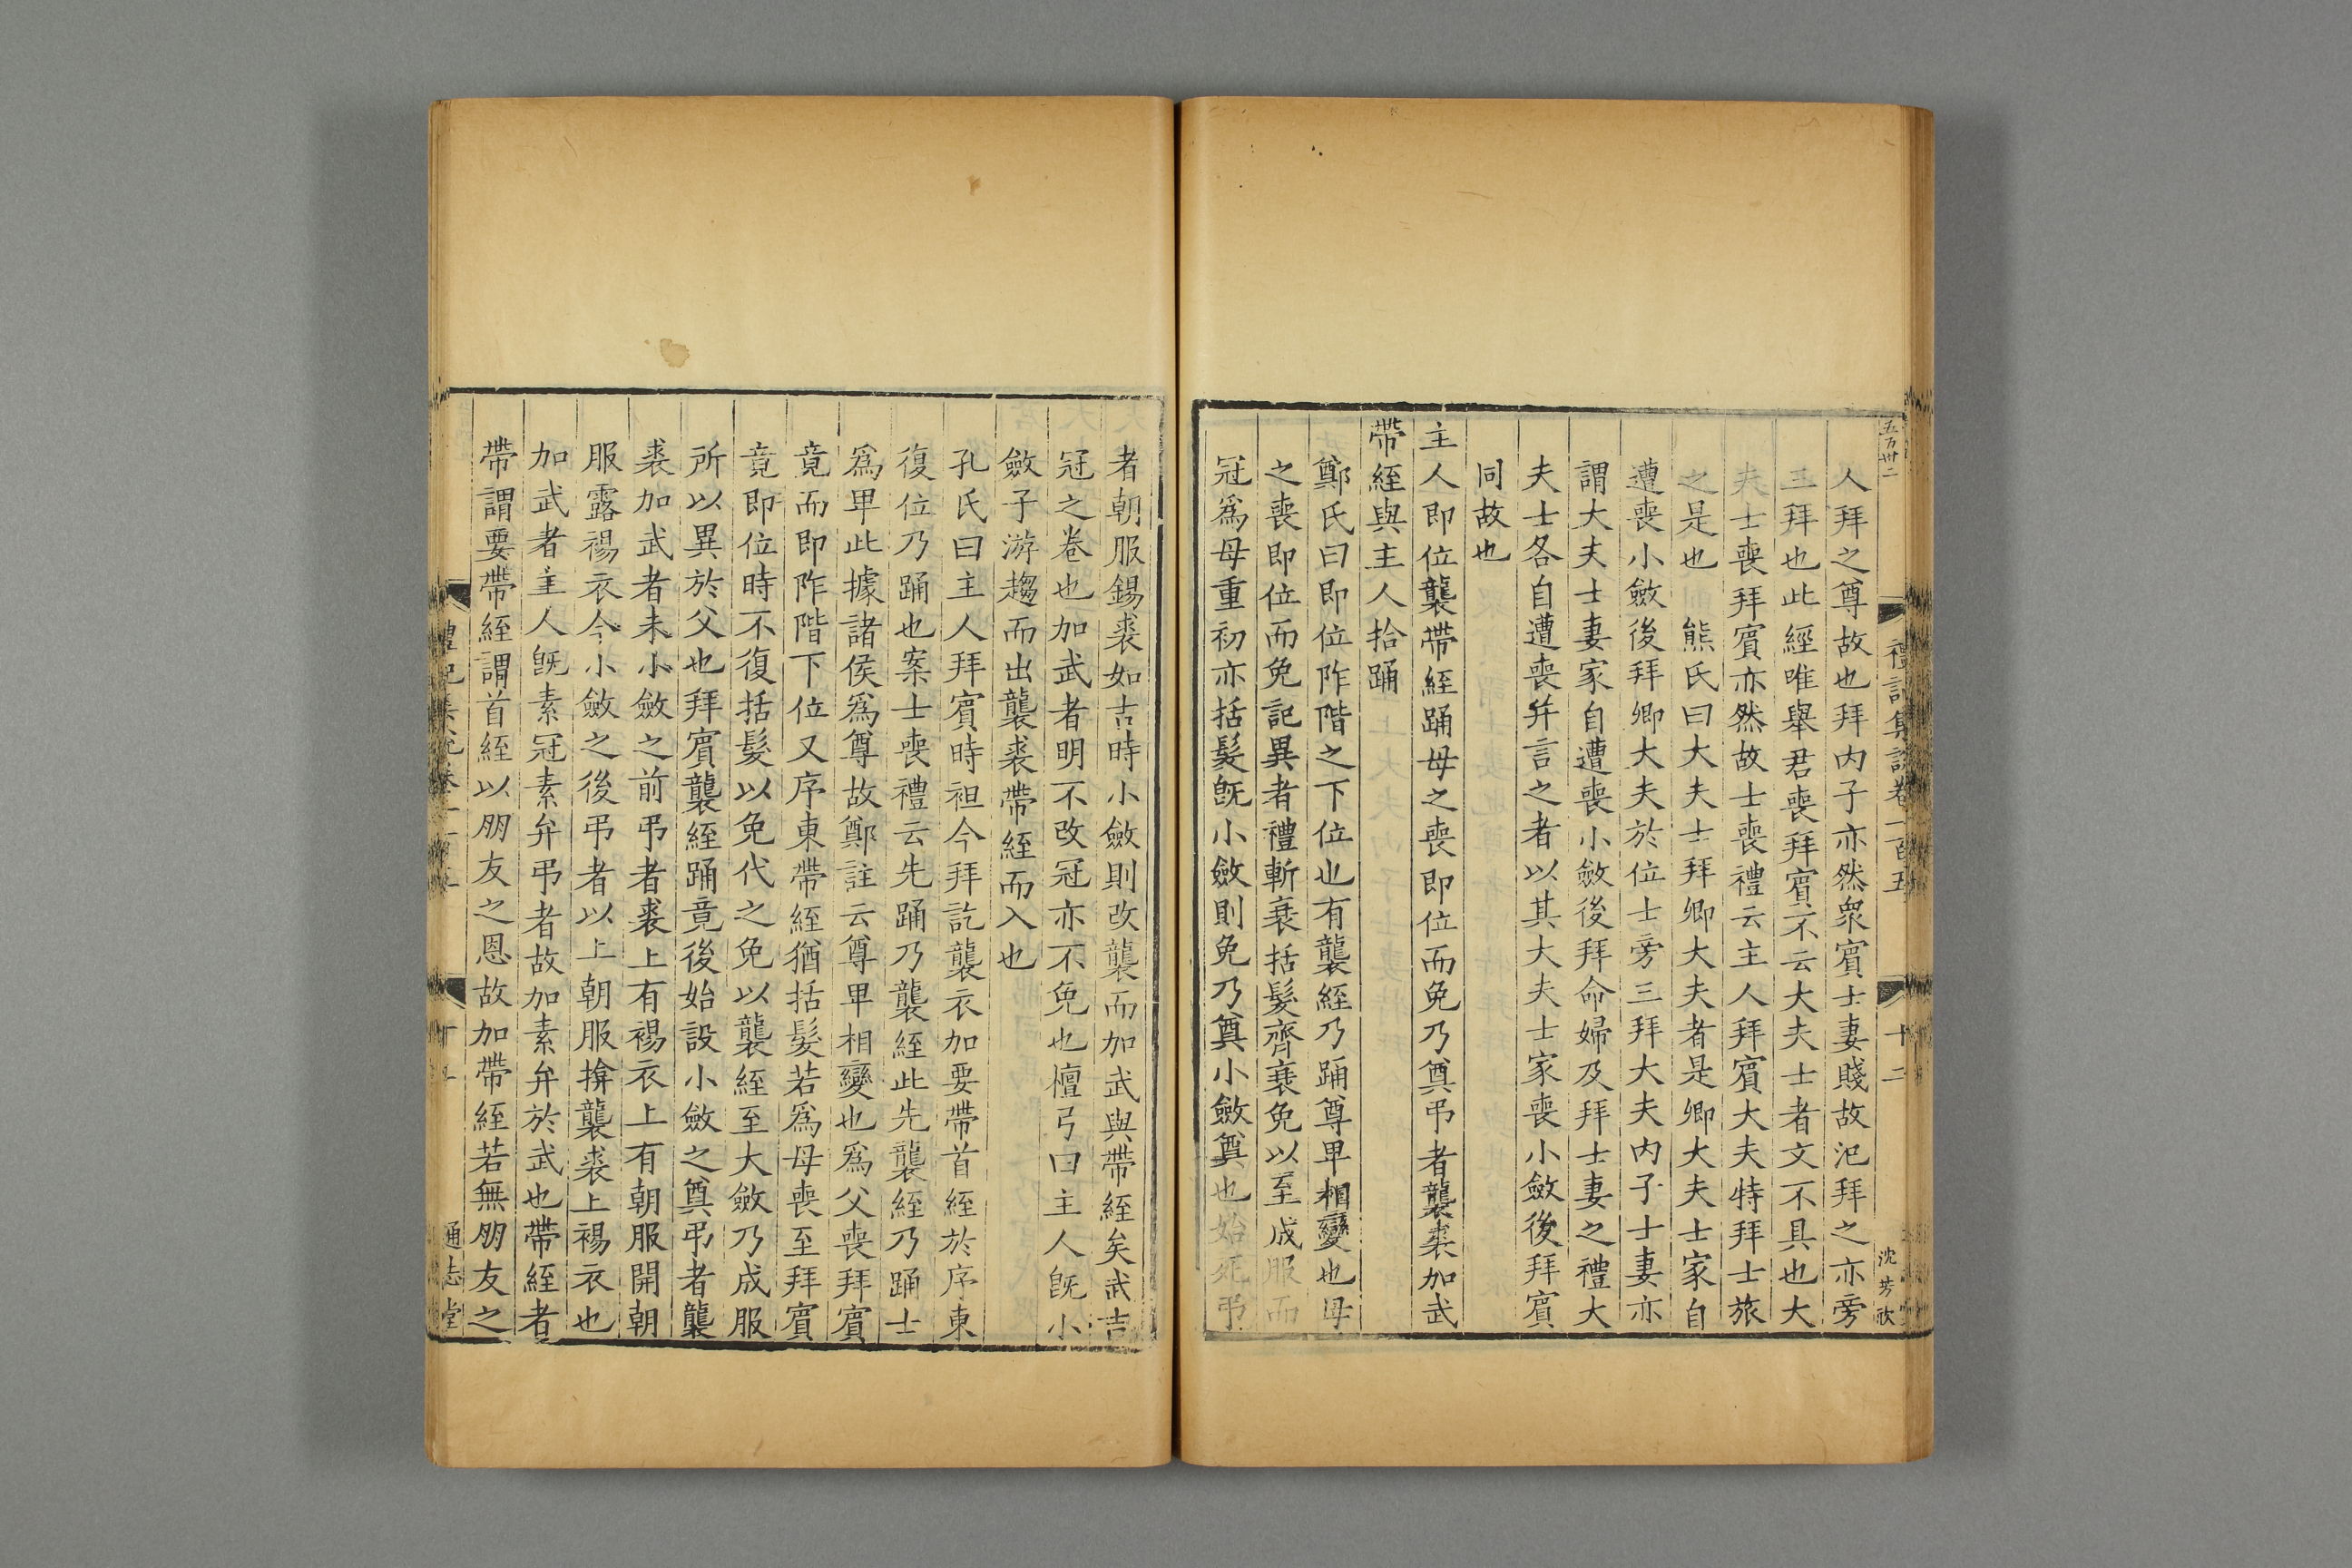 五百卅二
禮記集說卷一百五
十二
沈芳欣
人拜之尊故也拜內子亦然衆賓士妻賤故汜拜之亦旁
三拜也此經唯舉君喪拜賓不云大夫士者文不具也大
夫士喪拜賓亦然故士喪禮云主人拜賓大夫特拜士旅
之是也 熊氏曰大夫士拜卿大夫者是卿大夫士家自
遭喪小斂後拜卿大夫於位士旁三拜大夫內子士妻亦
謂大夫士妻家自遭喪小斂後拜命婦及拜士妻之禮大
夫士各自遭喪并言之者以其大夫士家喪小斂後拜賓
同故也
主人即位襲帶絰踊母之喪即位而免乃奠弔者襲裘加武
帶絰與主人拾踊
鄭氏曰即位阼階之下位也有襲絰乃踊尊卑相變也母
之喪即位而免記異者禮斬衰括髮齊衰免以至成服而
冠爲母重初亦括髮旣小斂則免乃奠小斂奠也始死弔
者朝服裼裘如吉時小斂則改襲而加武與帶絰矣武吉
冠之卷也加武者明不改冠亦不免也檀弓曰主人旣小
斂子游趨而出襲裘帶絰而入也
孔氏曰主人拜賓時袒今拜訖襲衣加要帶首絰於序東
復位乃踊也案士喪禮云先踊乃襲絰此先襲絰乃踊士
爲卑此據諸侯爲尊故鄭註云尊卑相變也爲父喪拜賓
竟而即阼階下位又序東帶絰猶括髮若爲母喪至拜賓
竟即位時不復括髮以免代之免以襲絰至大斂乃成服
所以異於父也拜賓襲絰踊竟後始設小斂之奠弔者襲
裘加武者未小斂之前弔者裘上有裼衣上有朝服開朝
服露裼衣今小斂之後弔者以上朝服揜襲裘上裼衣也
加武者主人旣素冠素弁弔者故加素弁於武也帶絰者
帶謂要帶絰謂首絰以朋友之恩故加帶絰若無朋友之
通志堂